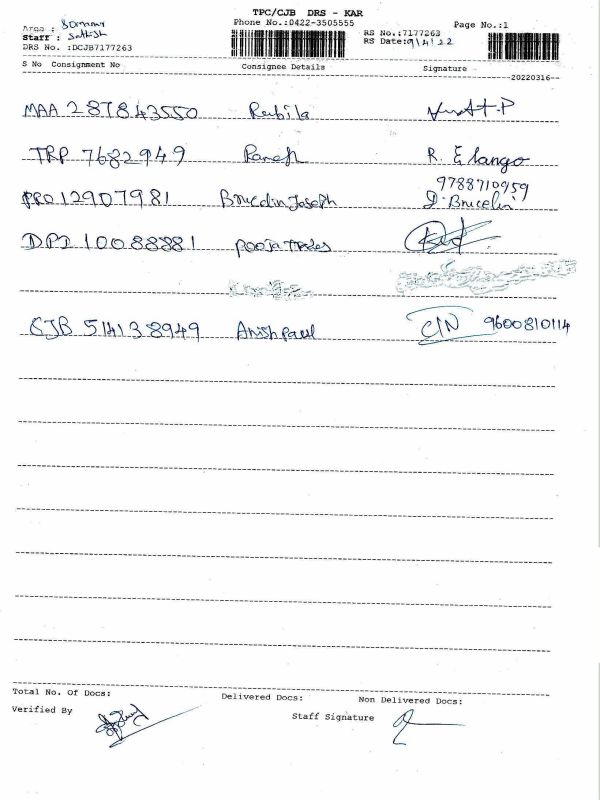 TPC/CJB DRS - KAR
Phone No.:0422-3505555
Page No.:1
Area :
Staff : Sathish
RS No.:7177263
RS Date:9/4/22
DRS No. :DCJB7177263
S No Consignment No Consignee Details Signature
20220316
MAA 287843550 Rabila
TRP 7682949 Ramesh R. Elango
9788710959
PRO 12907981 Brucelin Joseph D. Brucelin
DPI 10088881 Pooja Trades
CJB 514138949 Anish Paul CIN 9600810114
Total No. Of Docs: Delivered Docs: Non Delivered Docs:
Verified By Staff Signature